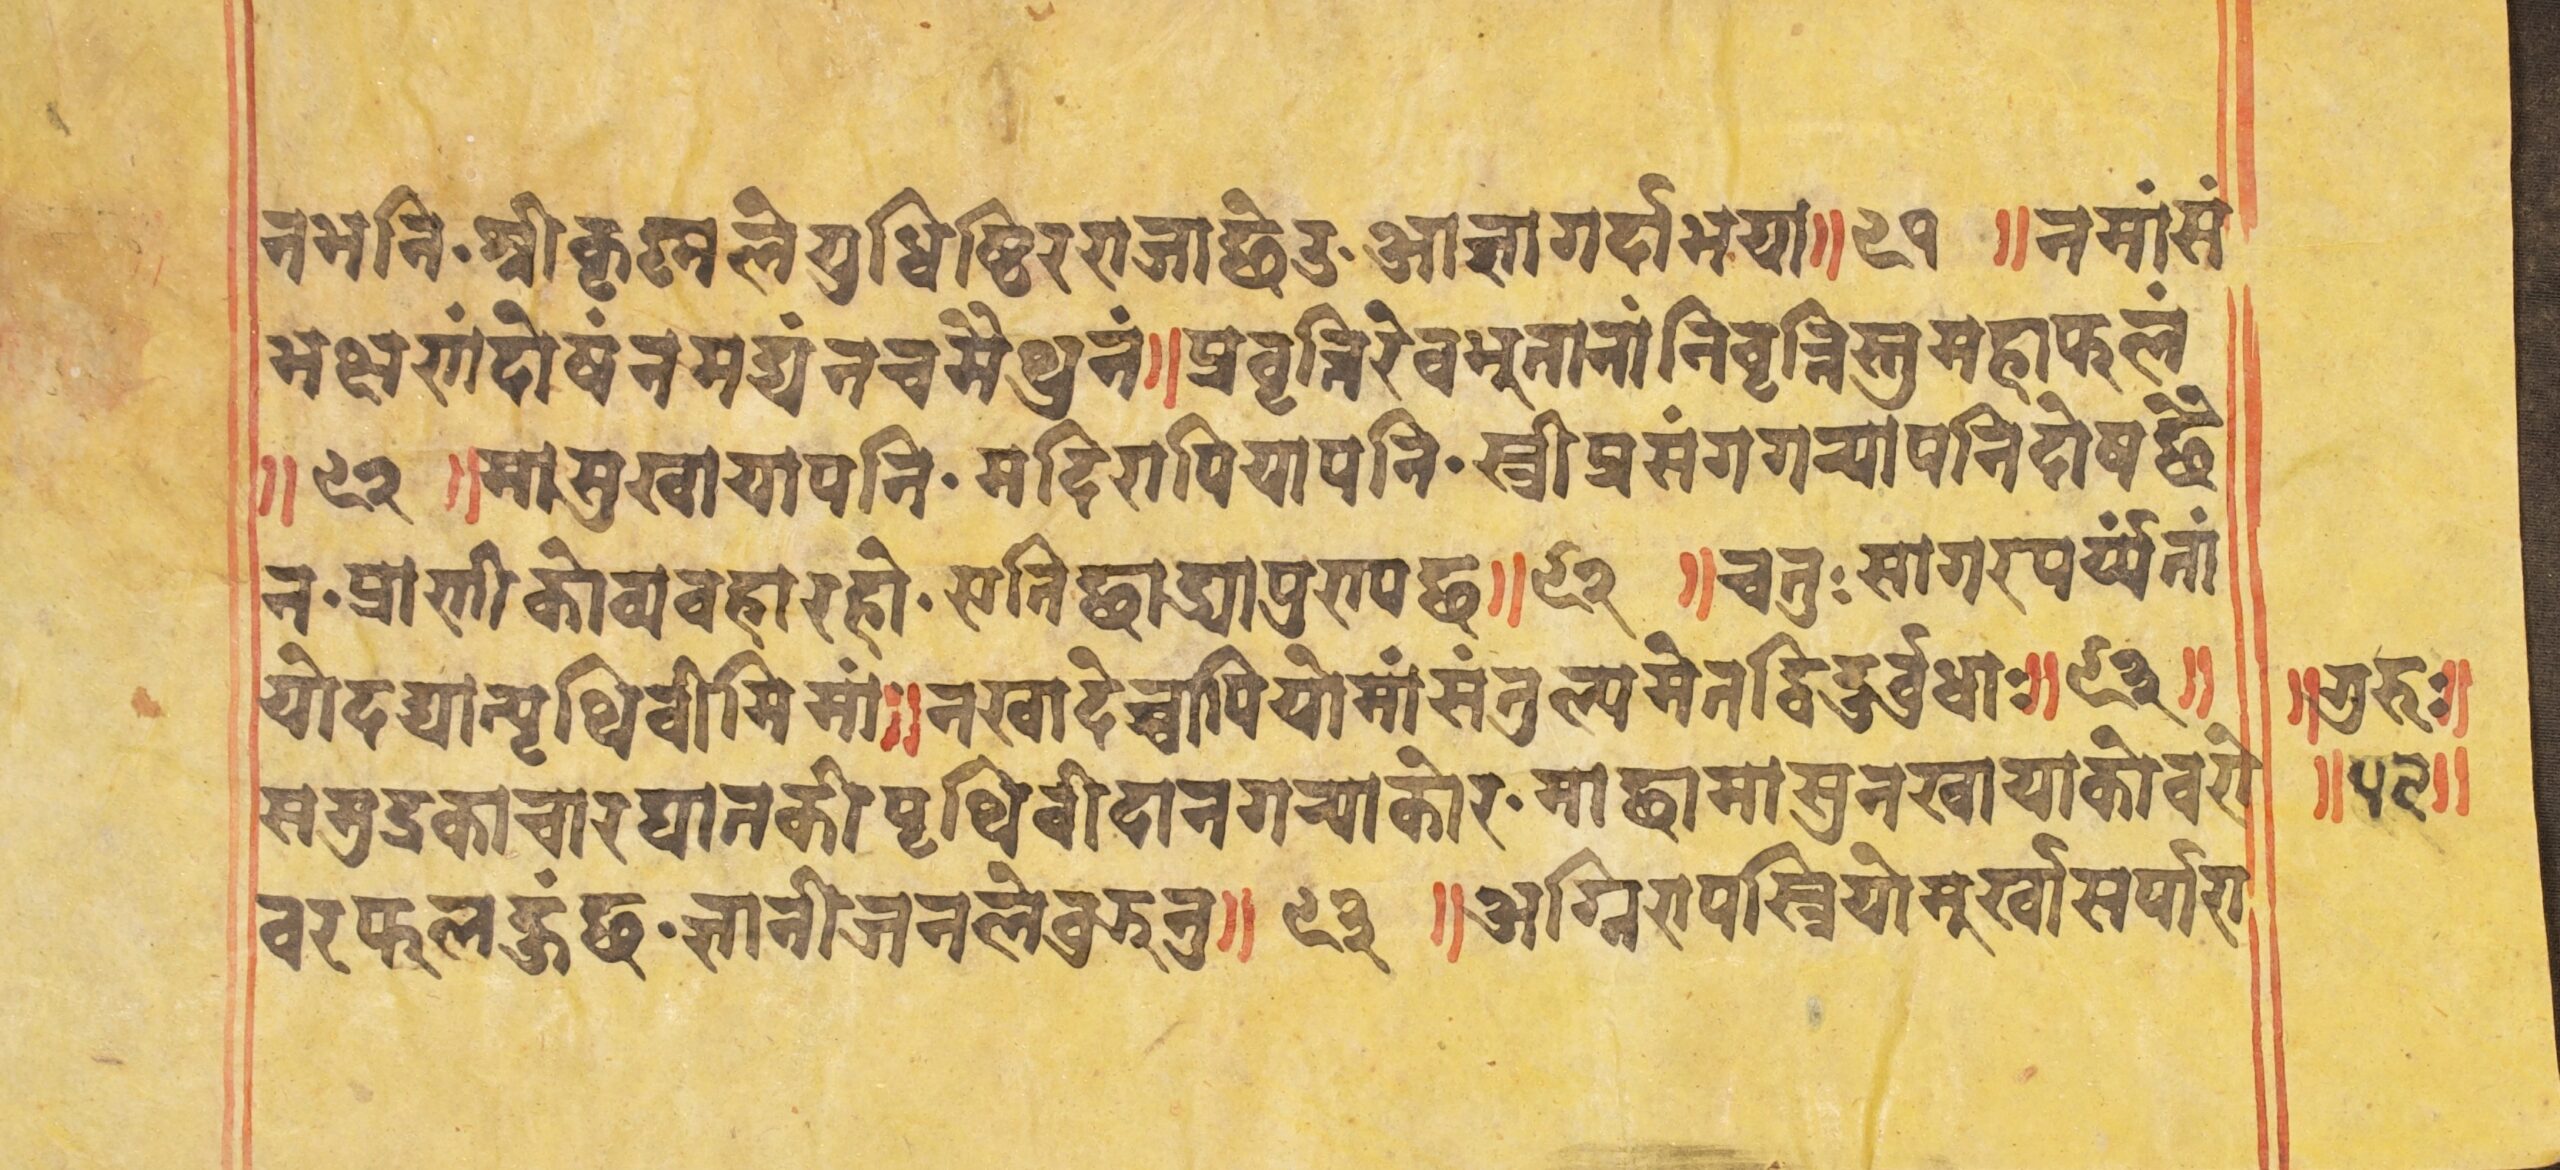 नभनि. श्रीकृष्नले युधिष्ठिरराजाछेउ. आज्ञागर्दाभया॥ ९१ ॥ नमांसं
भक्षणंदोषंनमद्यंनचमैथुनं॥ प्रवृत्तिरेवभुतानांनिवृत्तिस्तुमहाफलं
॥ ९२ ॥ मासुखायापनि. मदिरापियापनि. स्त्रीप्रसंगगर्‍यापनिदोषछै
न. प्राणीकोव्यवहारहो. सतिछाड्यापुरापछ॥ ९२ ॥ चतुःसागरपर्य्यंतां
योदद्यात्पृथिवीमिमां॥ नखादेच्चापियोमांसंतुल्यमेतद्विदुर्वुधाः॥ ९३ ॥
समुद्रकाचारघानकीपृथिवीदानगर्‍याकोर. माछामासुनखायाकोवरो
वरफलहुंछ. ज्ञानीजनलेवुझ्नु॥ ९३ ॥ अग्निरापस्त्रियोमुर्खासर्पारा
॥ गुरुः॥
॥ ५२॥